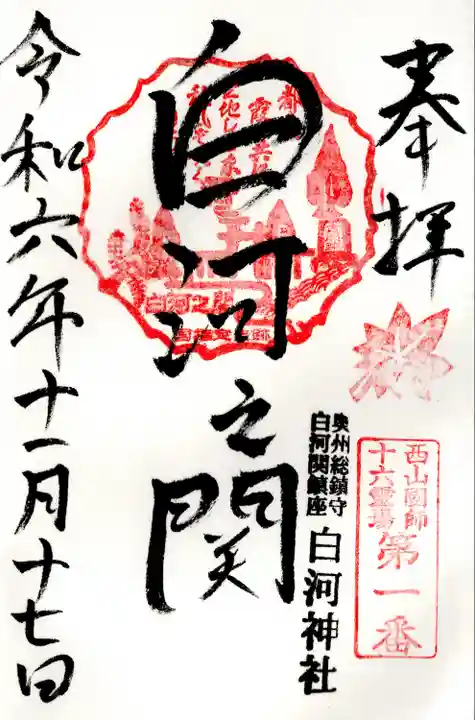 奉拝
西山国師
十六霊場
第一番
奥州総鎮守
白河関鎮座
白河神社
白河之関
白河之関
令和六年十一月十七日